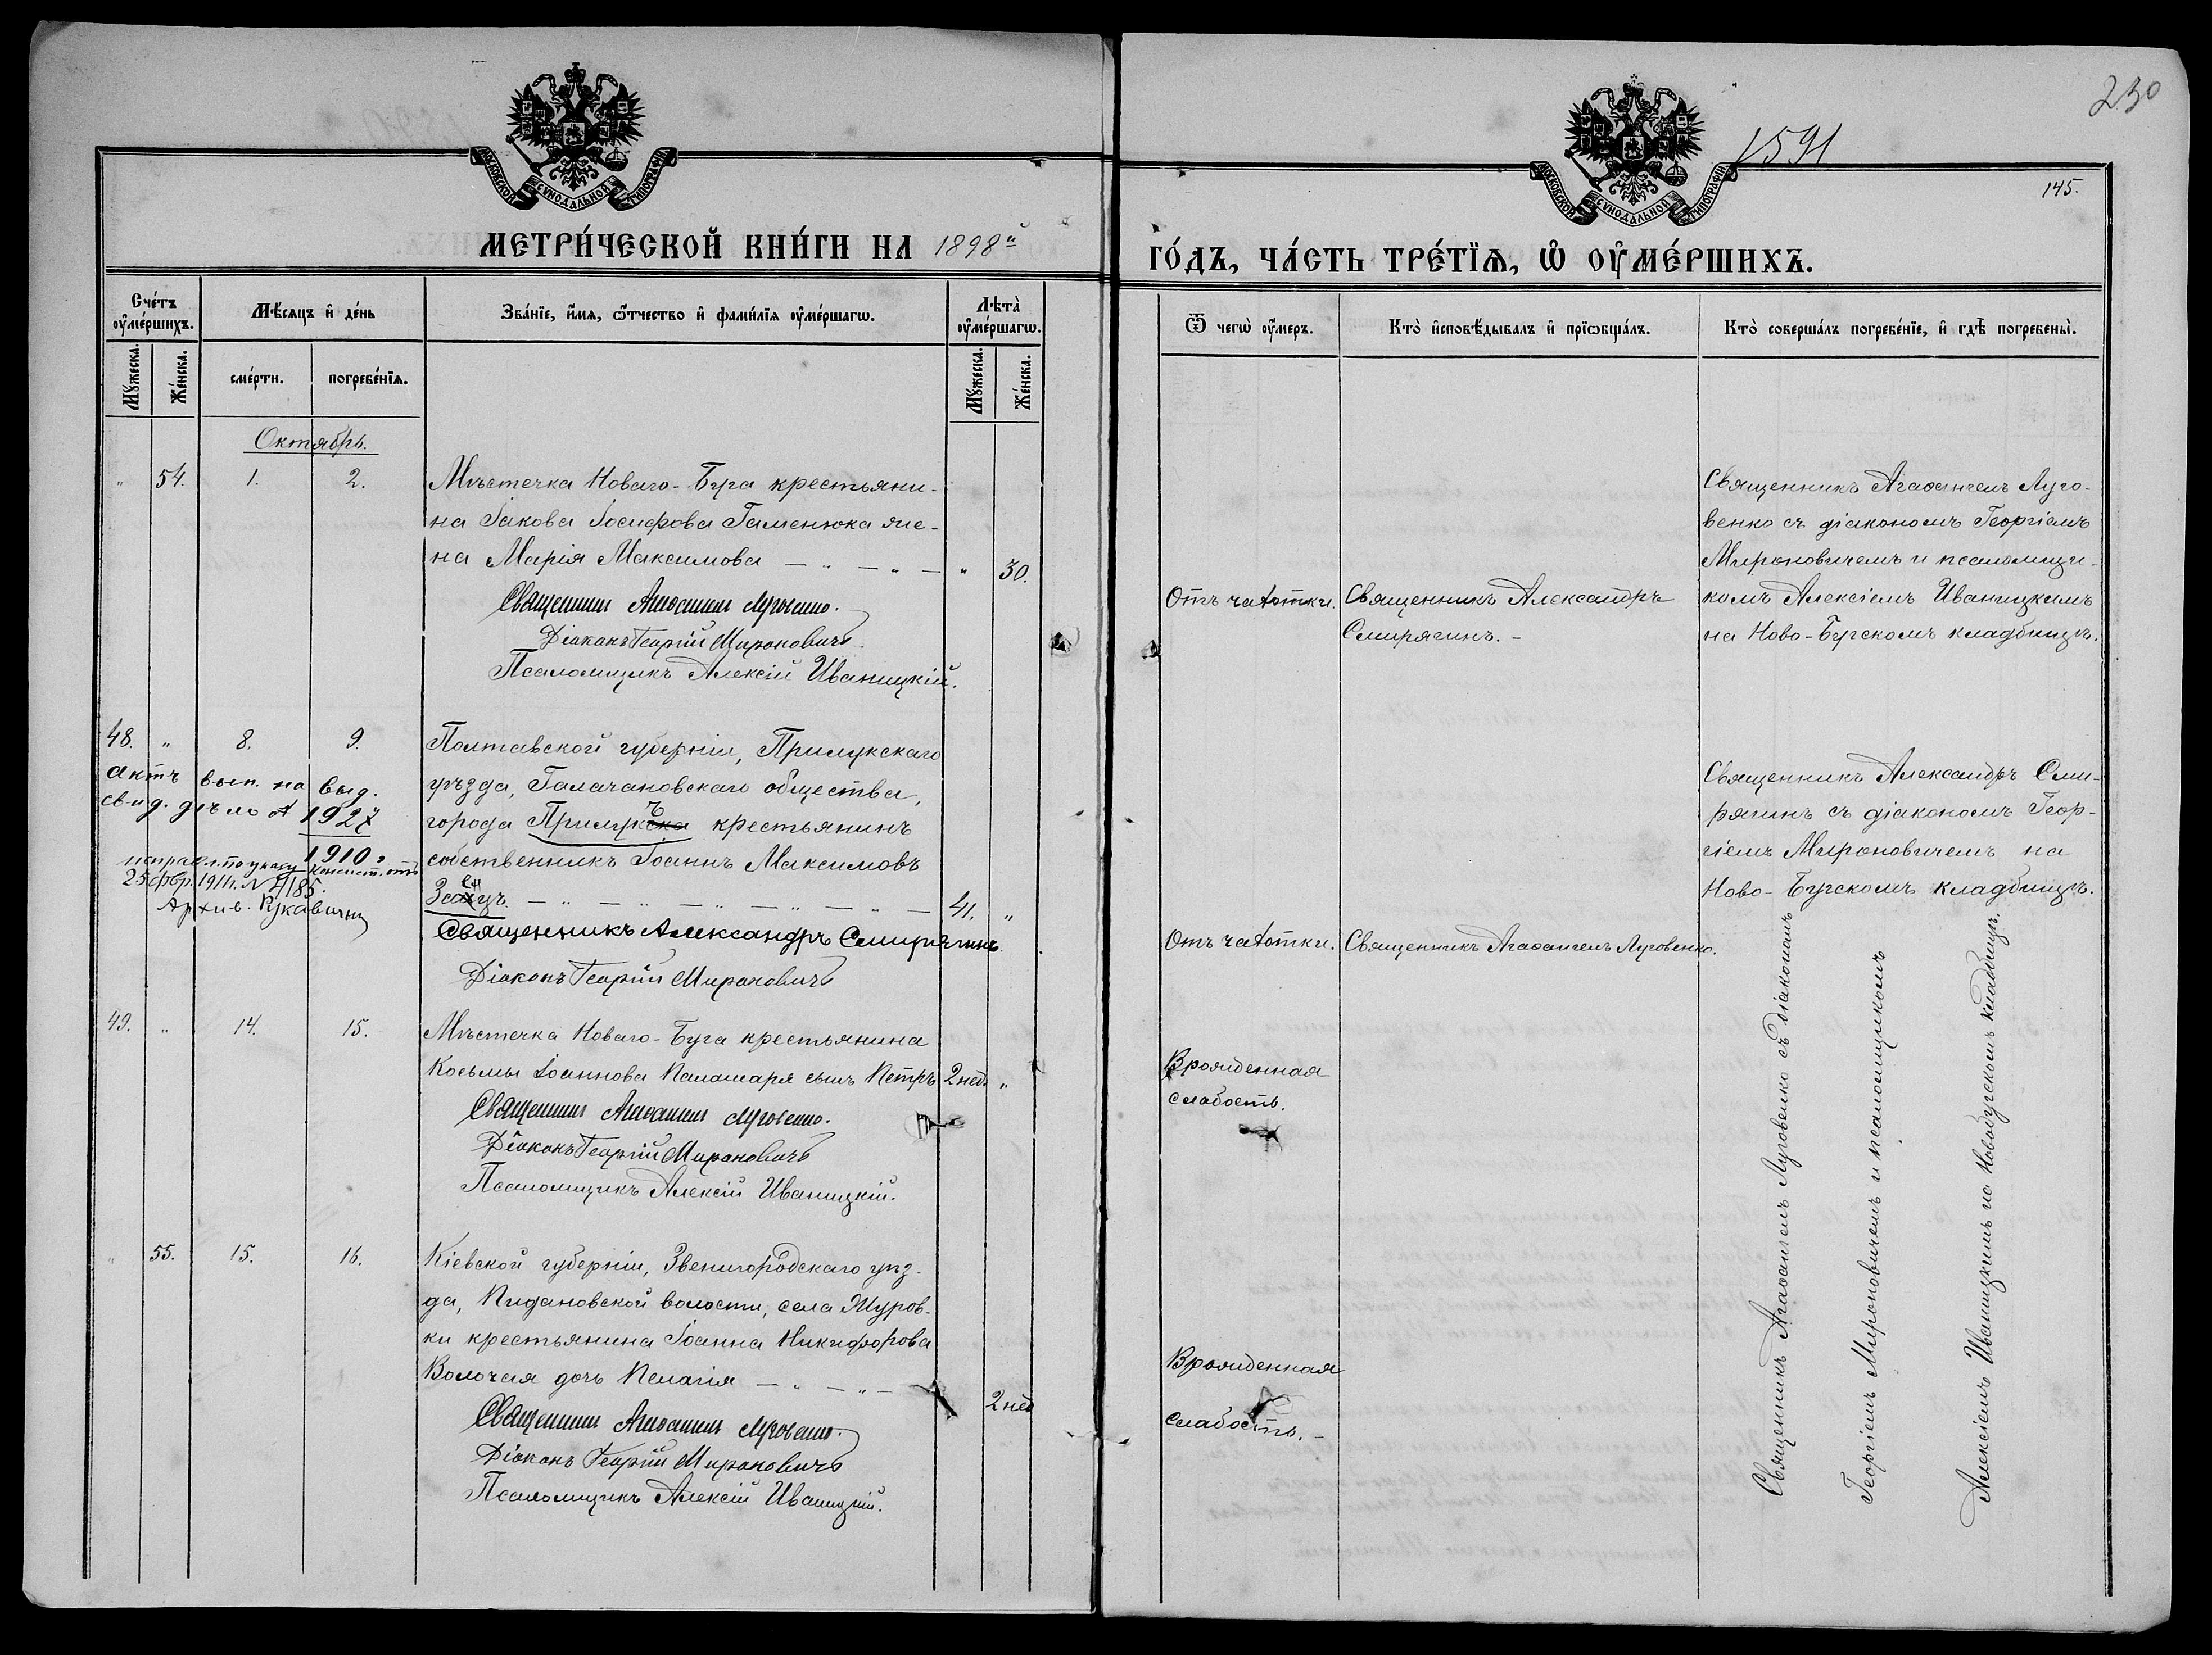 230
1591
145.
МОСКОВСКОЙ СѴНОДАЛЬНОЙ ТИПОГРАФІИ
МОСКОВСКОЙ СѴНОДАЛЬНОЙ ТИПОГРАФІИ
МЕТРИ́ЧЕСКОЙ КНИ́ГИ НА 1898й
ГО́ДЪ, ЧА́СТЬ ТРЕ́ТЇѦ, Ѡ҆ ОУ҆МЕ́РШИХЪ.
Сче́тъ оу҆ме́ршихъ.
Мꙋ́жеска.
Же́нска.
Мѣ́сяцъ и҆ де́нь
сме́рти.
погребе́нїѧ.
Зва́нїе, и҆́мѧ, ѻ҆́тчество и҆ фами́лїѧ оу҆ме́ршагѡ.
Лѣта̀ оу҆ме́ршагѡ.
Мꙋ́жеска.
Же́нска.
Ѿ чегѡ̀ оу҆́меръ.
Кто̀ и҆сповѣ́дывалъ и҆ прїѡбща́лъ.
Кто̀ соверша́лъ погребе́нїе, и҆ гдѣ̀ погребены̀.
Октябрь.
" 54. 1. 2.
Мѣстечка Новаго-Буга крестьяни-
на Іакова Іосифова Гаменюка же-
на Марія Максимова — " — " — " 30.
Священникъ Агаѳангелъ Луговенко.
Діаконъ Георгій Мироновичъ.
Псаломщикъ Алексій Иваницкій.
Отъ чахотки.
Священникъ Александръ
Смирягинъ. -
Священникъ Агаѳангелъ Луго-
венко съ діакономъ Георгіемъ
Мироновичемъ и псаломщи-
комъ Алексіемъ Иваницкимъ
на Ново-Бугскомъ кладбищѣ.
48. " 8. 9.
актъ вып. на выд.
свид. дѣло № 1927
1910 г
исправл. по указу Консист. отъ
25 фвр. 1911 г. N 4185.
Архив. Рукавичн
Полтавской губерніи, Прилукскаго
уѣзда, Галачановскаго общества,
города Прилукъ крестьянинъ
собственникъ Іоаннъ Максимовъ
Заецъ. — " — " — " — " — 41. "
Священникъ Александръ Смирягинъ
Діаконъ Георгій Мироновичъ
Отъ чахотки.
Священникъ Агаѳангелъ Луговенко.
Священникъ Александръ Сми-
рягинъ съ діакономъ Геор-
гіемъ Мироновичемъ на
Ново-Бугскомъ кладбищѣ.
49. " 14. 15.
Мѣстечка Новаго-Буга крестьянина
Косьмы Іоаннова Паламаря сынъ Петръ 2 нед. "
Священникъ Агаѳангелъ Луговенко.
Діаконъ Георгій Мироновичъ
Псаломщикъ Алексій Иваницкій.
Врожденная
слабость.
" 55. 15. 16.
Кіевской губерніи, Звенигородскаго уѣз-
да, Пидановской волости, села Журов-
ки крестьянина Іоанна Никифорова
Волочая дочь Пелагія — " — " — 2 нед
Священникъ Агаѳангелъ Луговенко.
Діаконъ Георгій Мироновичъ
Псаломщикъ Алексій Иваницкій.
Врожденная
слабость. -
Священникъ Агаѳангелъ Луговенко съ діакономъ
Георгіемъ Мироновичемъ и псаломщикомъ
Алексіемъ Иваницкимъ на Новобугскомъ кладбищѣ.